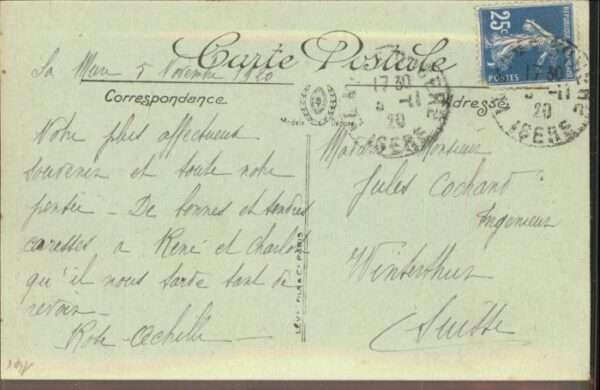 Carte Postale
La Mure 5 Novembre 1920
Correspondance
Adresse
Notre plus affectueux
souvenir et toute notre
pensée - De bonnes et tendres
caresses a René et Charlot
qu'il nous tarde tant de
revoir -
Rose - Achille
Monsieur
Jules Cochand
Ingenieur
Winterthur
Suisse
25c
POSTES
17 30
5 -11
20
ISERE
17 30
5 -11
20
ISERE